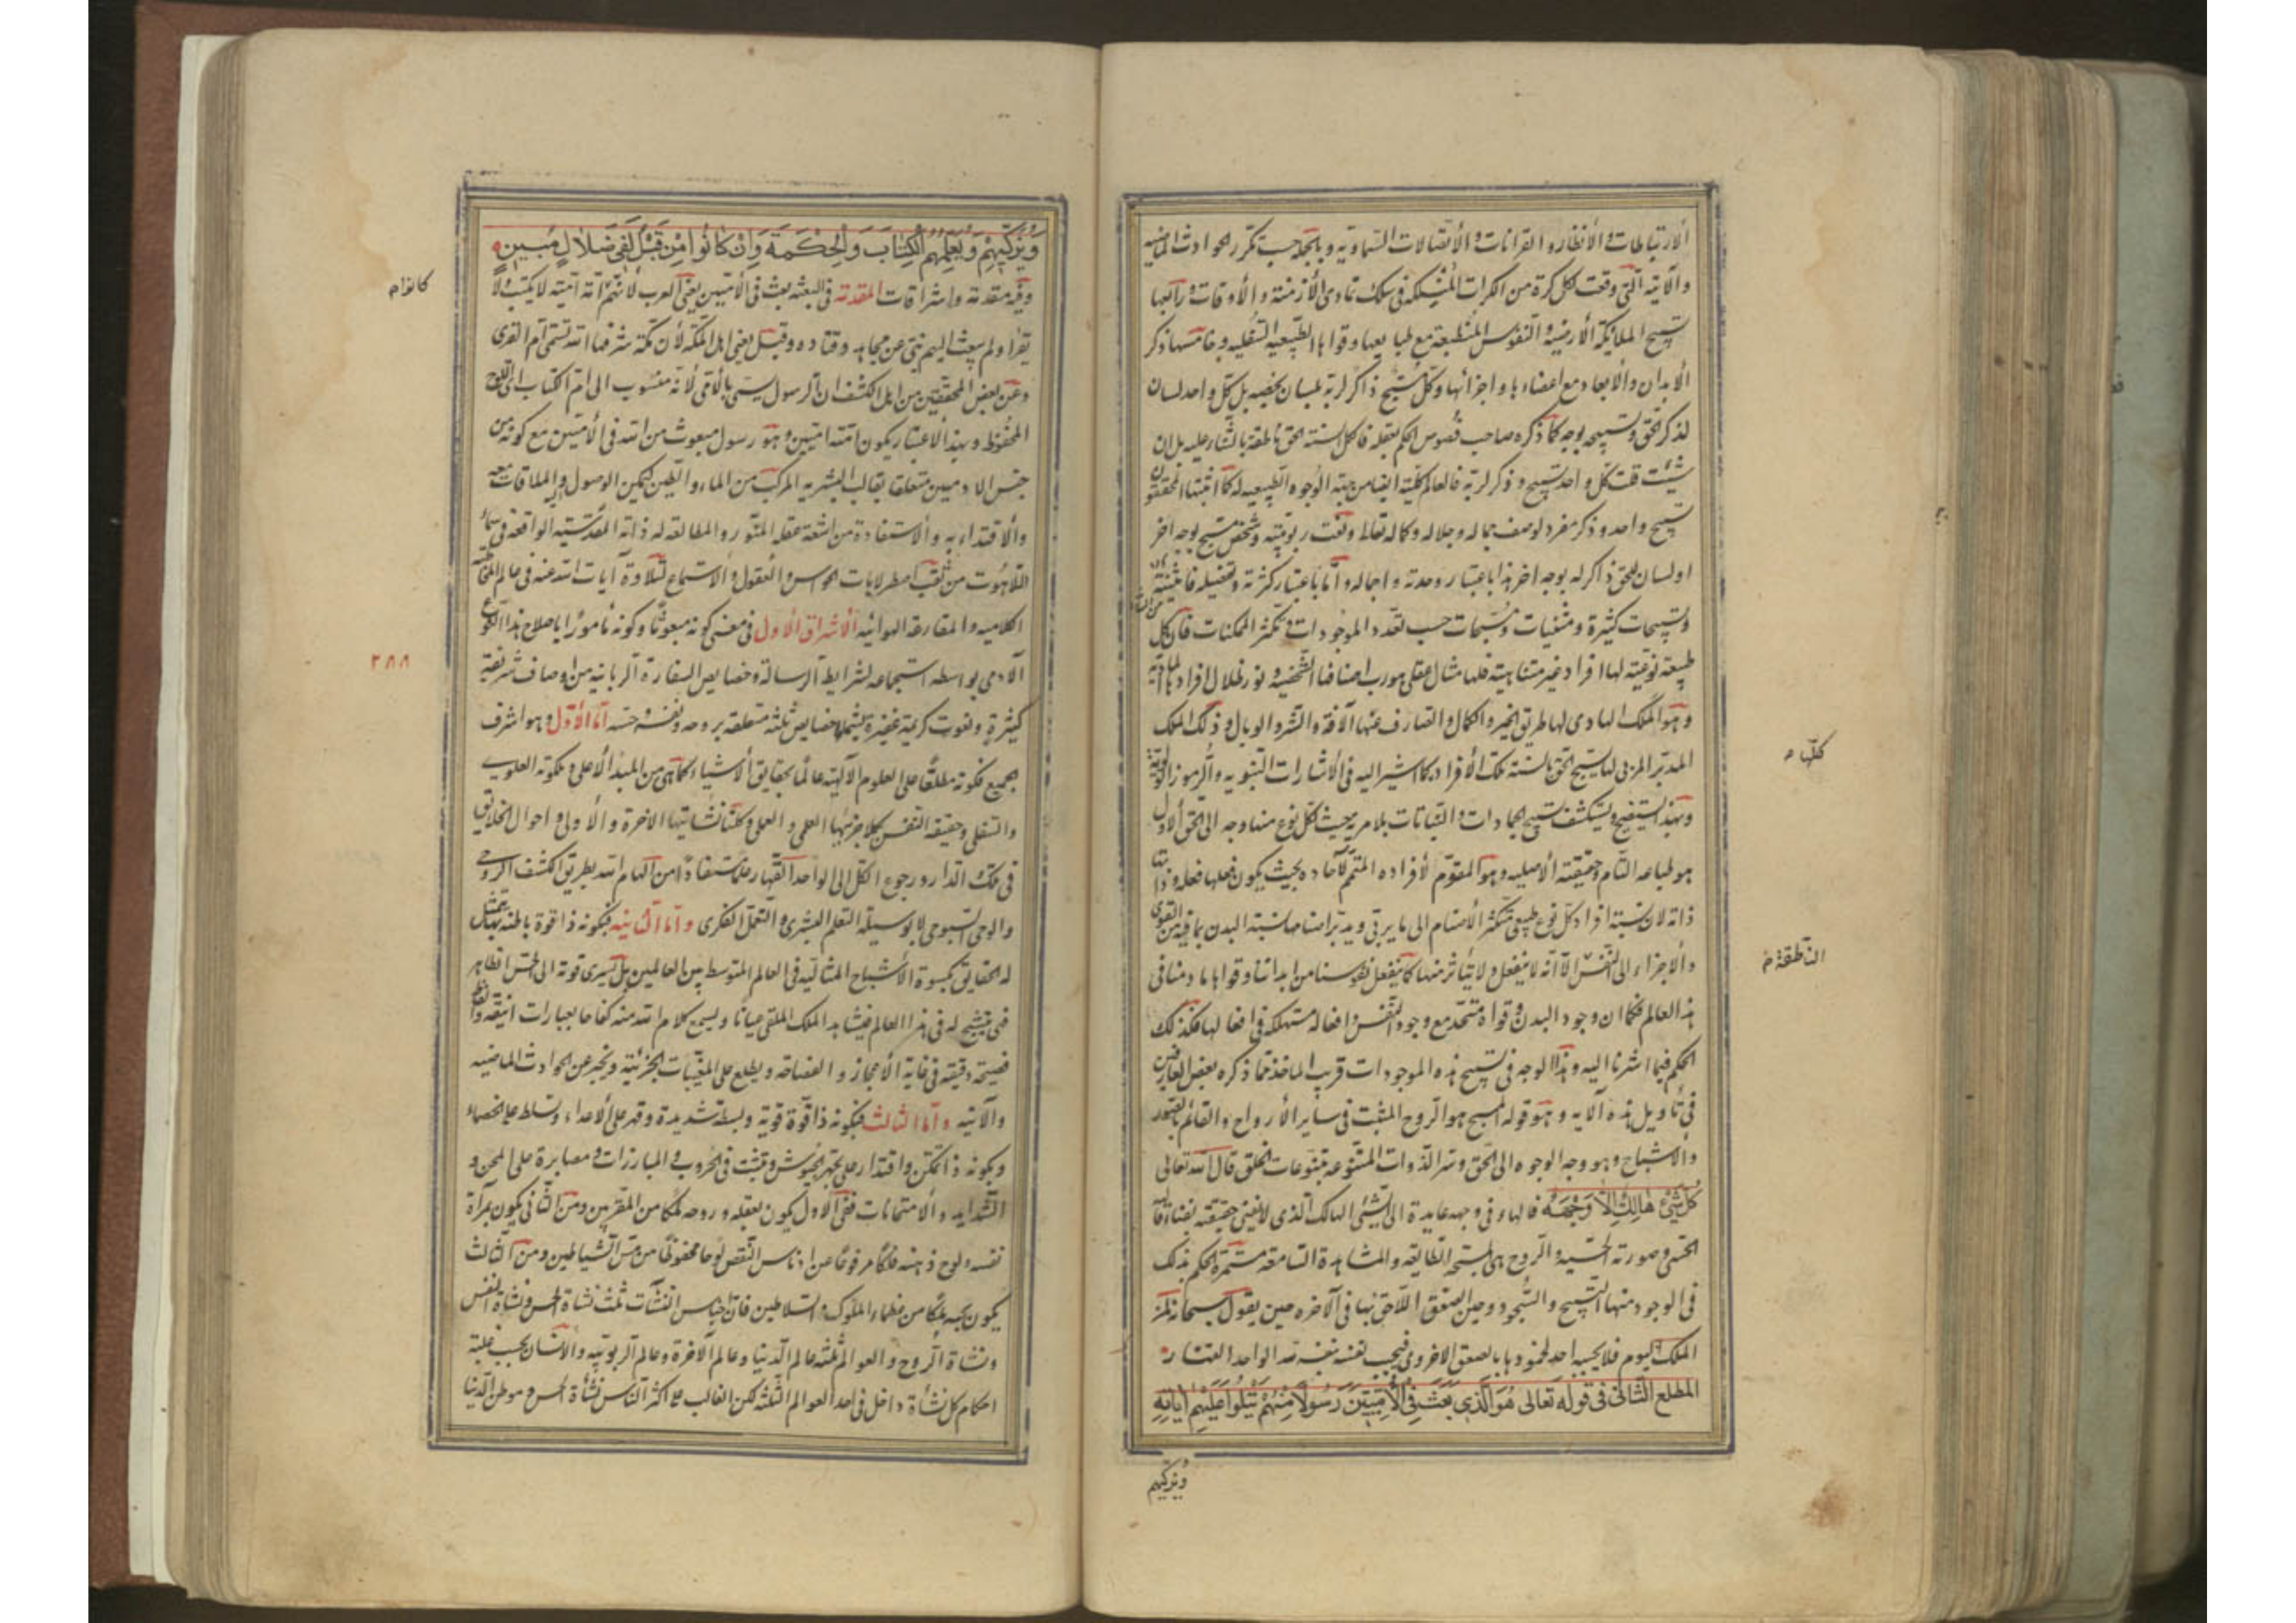 الارتباطات والانظار والقرانات والاتصالات السماوية وبالجملة حسب تكرر الحوادث الماضيه
والآتية التي وقعت كل كرة من الكرات في سلك تمادي الأزمنة والأوقات ورابعها
تسبيح الملائكة الأرضية والنفوس المنطبعة مع طبايعها وقواها الطبيعيه السفليه وخامسها ذكر
الأبدان والأبعاد مع اعضاءها واجزائها وكل مسبح ذاكر لربه بلسان يخصه بل كل واحد لسان
لذكر الحق وتسبيحه بوجه كما ذكره صاحب فصوص الحكم بقوله فالكل السنة الحق ناطقة بالثناء عليه بل ان
شئت قلت كل واحد تسبيح وذكر لربه فالعالم كلية ايضا من جهة الوجوه الطبيعيه له كما اثبتها المحققون
تسبيح واحد وذكر مفرد لوصف جماله وجلاله وكماله تعالى ونعت ربوبيته وشخص مسبح بوجه اخر
او لسان للحق ذاكر له بوجه اخر هذا باعتبار وحدته واجماله واما باعتبار كثرته وتفصيله فاثنية
وتسبيحات كثيرة ومثنيات ومسبحات حسب تعدد الموجودات وتكثر الممكنات فان كل
من الثناء
طبيعة نوعية لها افراد غير متناهية فلها مثال عقلي هو رب اصنافها الشخصية ونور ظلال افرادها المادية
وهو الملك الهادي لها طريق الخير والكمال والصارف عنها الآفة والشر والوبال وذلك الملك
المدبر المزبى لها يسبح الحق بالسنة تلك الأفراد كما اشير اليه في الأشارات النبوية والرموز
وبهذا يتضح ويستكشف تسبيح الجمادات والنباتات بلا مرية حيث لكل نوع منها وجه الى الحق الأول
هو طباعه التام وحقيقته الأصليه وهو المقوم لأفراده المتمم لآحاده بحيث يكون فعلها فعله وذاتها
ذاته لان نسبة افراد كل نوع طبيعي متكثر الأصنام الى ما يربي ويدبر اصنامها نسبة البدن بما فيه من القوى
والأجزاء الى النفس الا انه لا ينفعل ولا يتأثر منها كما ينفعل نفوسنا من ابداننا وقواها ما دمنا في
هذا العالم فكما ان وجود البدن وقواه متحد مع وجود النفس وافعاله مستهلكة في افعالها فكذلك
الحكم فيما اشرنا اليه وهذا الوجه في تسبيح هذه الموجودات قريب الماخذ مما ذكره بعض العارفين
في تأويل هذه الآيه وهو قوله المسبح هو الروح المثبت في ساير الأرواح والقائم بالصور
والاشباح وهو وجه الوجوه الى الحق وسر الذوات المتنوعة بتنوعات الخلق قال الله تعالى
كُلُّ شَيْءٍ هَالِكٌ إِلَّا وَجْهَهُ فالهاء في وجهه عايدة الى الشئ الهالك الذي لا يفنى حقيقته بفناء
الحسي وصورته الحسية والروح هي المسبحة الطايعة والمشاهدة السامعة مستمرة الحكم بذلك
في الوجود منها التسبيح والسجود وحين الصعق اللاحق بها في الآخره حين يقول سبحانه لمن
الملك اليوم فلا يجيبه احد لخمودها بالصعق الاخروي فيجيب نفسه بنفسه لله الواحد القهار
المطلع الثاني في قوله تعالى هُوَ الَّذِي بَعَثَ فِي الْأُمِّيِّينَ رَسُولًا مِنْهُمْ يَتْلُوا عَلَيْهِمْ آيَاتِهِ
ويزكيهم
كلها
الناطقة م
وَيُزَكِّيهِمْ وَيُعَلِّمُهُمُ الْكِتَابَ وَالْحِكْمَةَ وَإِنْ كَانُوا مِنْ قَبْلُ لَفِي ضَلَالٍ مُبِينٍ
وفيه مقدمة واشراقات المقدمة في البعثه بعث في الأميين يعني العرب لأنهم امة امية لا يكتب ولا
كانوا م
يقرا ولم يبعث اليهم نبي عن مجاهد وقتاده وقيل يعني اهل المكة لأن مكة شرفها الله تسمى ام القرى
وعن بعض المحققين من اهل الكشف ان الرسول يسمى بالأمي لأنه منسوب الى ام الكتاب اي اللوح
المحفوظ وبهذا الاعتبار يكون امته اميين وهو رسول مبعوث من الله في الأميين مع كونه من
جنس الادميين متعلقا بقالب البشريه المركب من الماء والطين ليمكن الوصول اليه والملاقات معه
والاقتداء به والاستفادة من اشعة عقله المنور والمطالعة له ذاته المقدسية الواقعة في سماء
اللاهوت من ثقب اصطرلابات الحواس والعقول والاستماع لتلاوة آيات الله عنه في عالم
الكلاميه والمقارعة الهوائيه الأشراق الأول في معنى كونه مبعوثا وكونه مأمورا باصلاح هذا النوع
٢٨٨
الآدمي بواسطه استجماعه لشرايط الرسالة وخصايص السفارة الربانيه من اوصاف شريفة
كثيرة ونعوت كريمة غزيرة يشملها خصايص ثلثه متعلقه بروحه ونفسه وحسه اما الأول وهو اشرف
الجميع فكونه مطلعا على العلوم الآلهية عالما بحقايق الأشياء كما هي من المبدأ الأعلى وملكوته العلوي
والسفلي وحقيقة النفس بكلا جزئيها العلمي والعملي وكلتا نشأتيها الآخرة والأولى واحوال الخلايق
في تلك الدار ورجوع الكل الى الواحد القهار علما مستفادا من الهام الله بطريق الكشف الروحي
والوحي السبوحي لا بوسيلة التعلم البشري والتعمل الفكري واما الثانيه فبكونه ذا قوة باطنه يتمثل بها
له الحقايق بكسوة الأشباح المثاليه في العالم المتوسط بين العالمين بل يسري قوته الى الحس الظاهر
فيتشبح له في هذا العالم فيشاهد الملك الملقي عيانا ويسمع كلام الله منه كفاحا بعبارات انيقة والفاظ
فصيحة دقيقه في غاية الأعجاز والفصاحه ويطلع على المغيبات الجزئية ويخبر عن الحوادث الماضيه
والآتيه واما الثالث فبكونه ذا قوة قوية وبسطة شديدة وقهر على الأعداء وتسلط على الخصماء
وبكونه ذا تمكن واقتدار على تجهيز الجيوش وتثبت في الحروب والمبارزات ومصابرة على المحن و
الشدايد والامتحانات ففي الأول يكون بعقله وروحه ملكا من المقربين ومن الثاني يكون بمرآة
نفسه ولوح ذهنه فلكا مرفوعا عن ادناس النقص لوحا محفوظا من مس الشياطين ومن الثالث
يكون بحسه ملكا من عظماء الملوك والسلاطين فان اجناس النشآت ثلث نشاة الحس ونشاة النفس
ونشاة الروح والعوالم ثلثه عالم الدنيا وعالم الآخرة وعالم الربوبيه والانسان بحسب غلبة
احكام كل نشاة داخل في احد العوالم الثلثه لكن الغالب على اكثر الناس نشأة الحس وموطن الدنيا